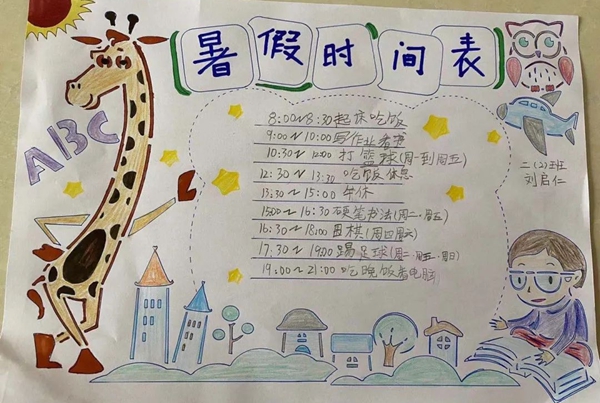 暑假时间表
ABC
8:00~8:30起床吃饭
9:00~10:00写作业看书
10:30~12:00打篮球(周一到周五)
12:30~13:30吃饭休息
13:30~15:00午休
15:00~16:30硬笔书法(周二、周五)
16:30~18:00围棋(周四周六)
17:30~19:00踢足球(周二、周五、周日)
19:00~21:00吃晚饭看电脑
二(2)班
刘启仁